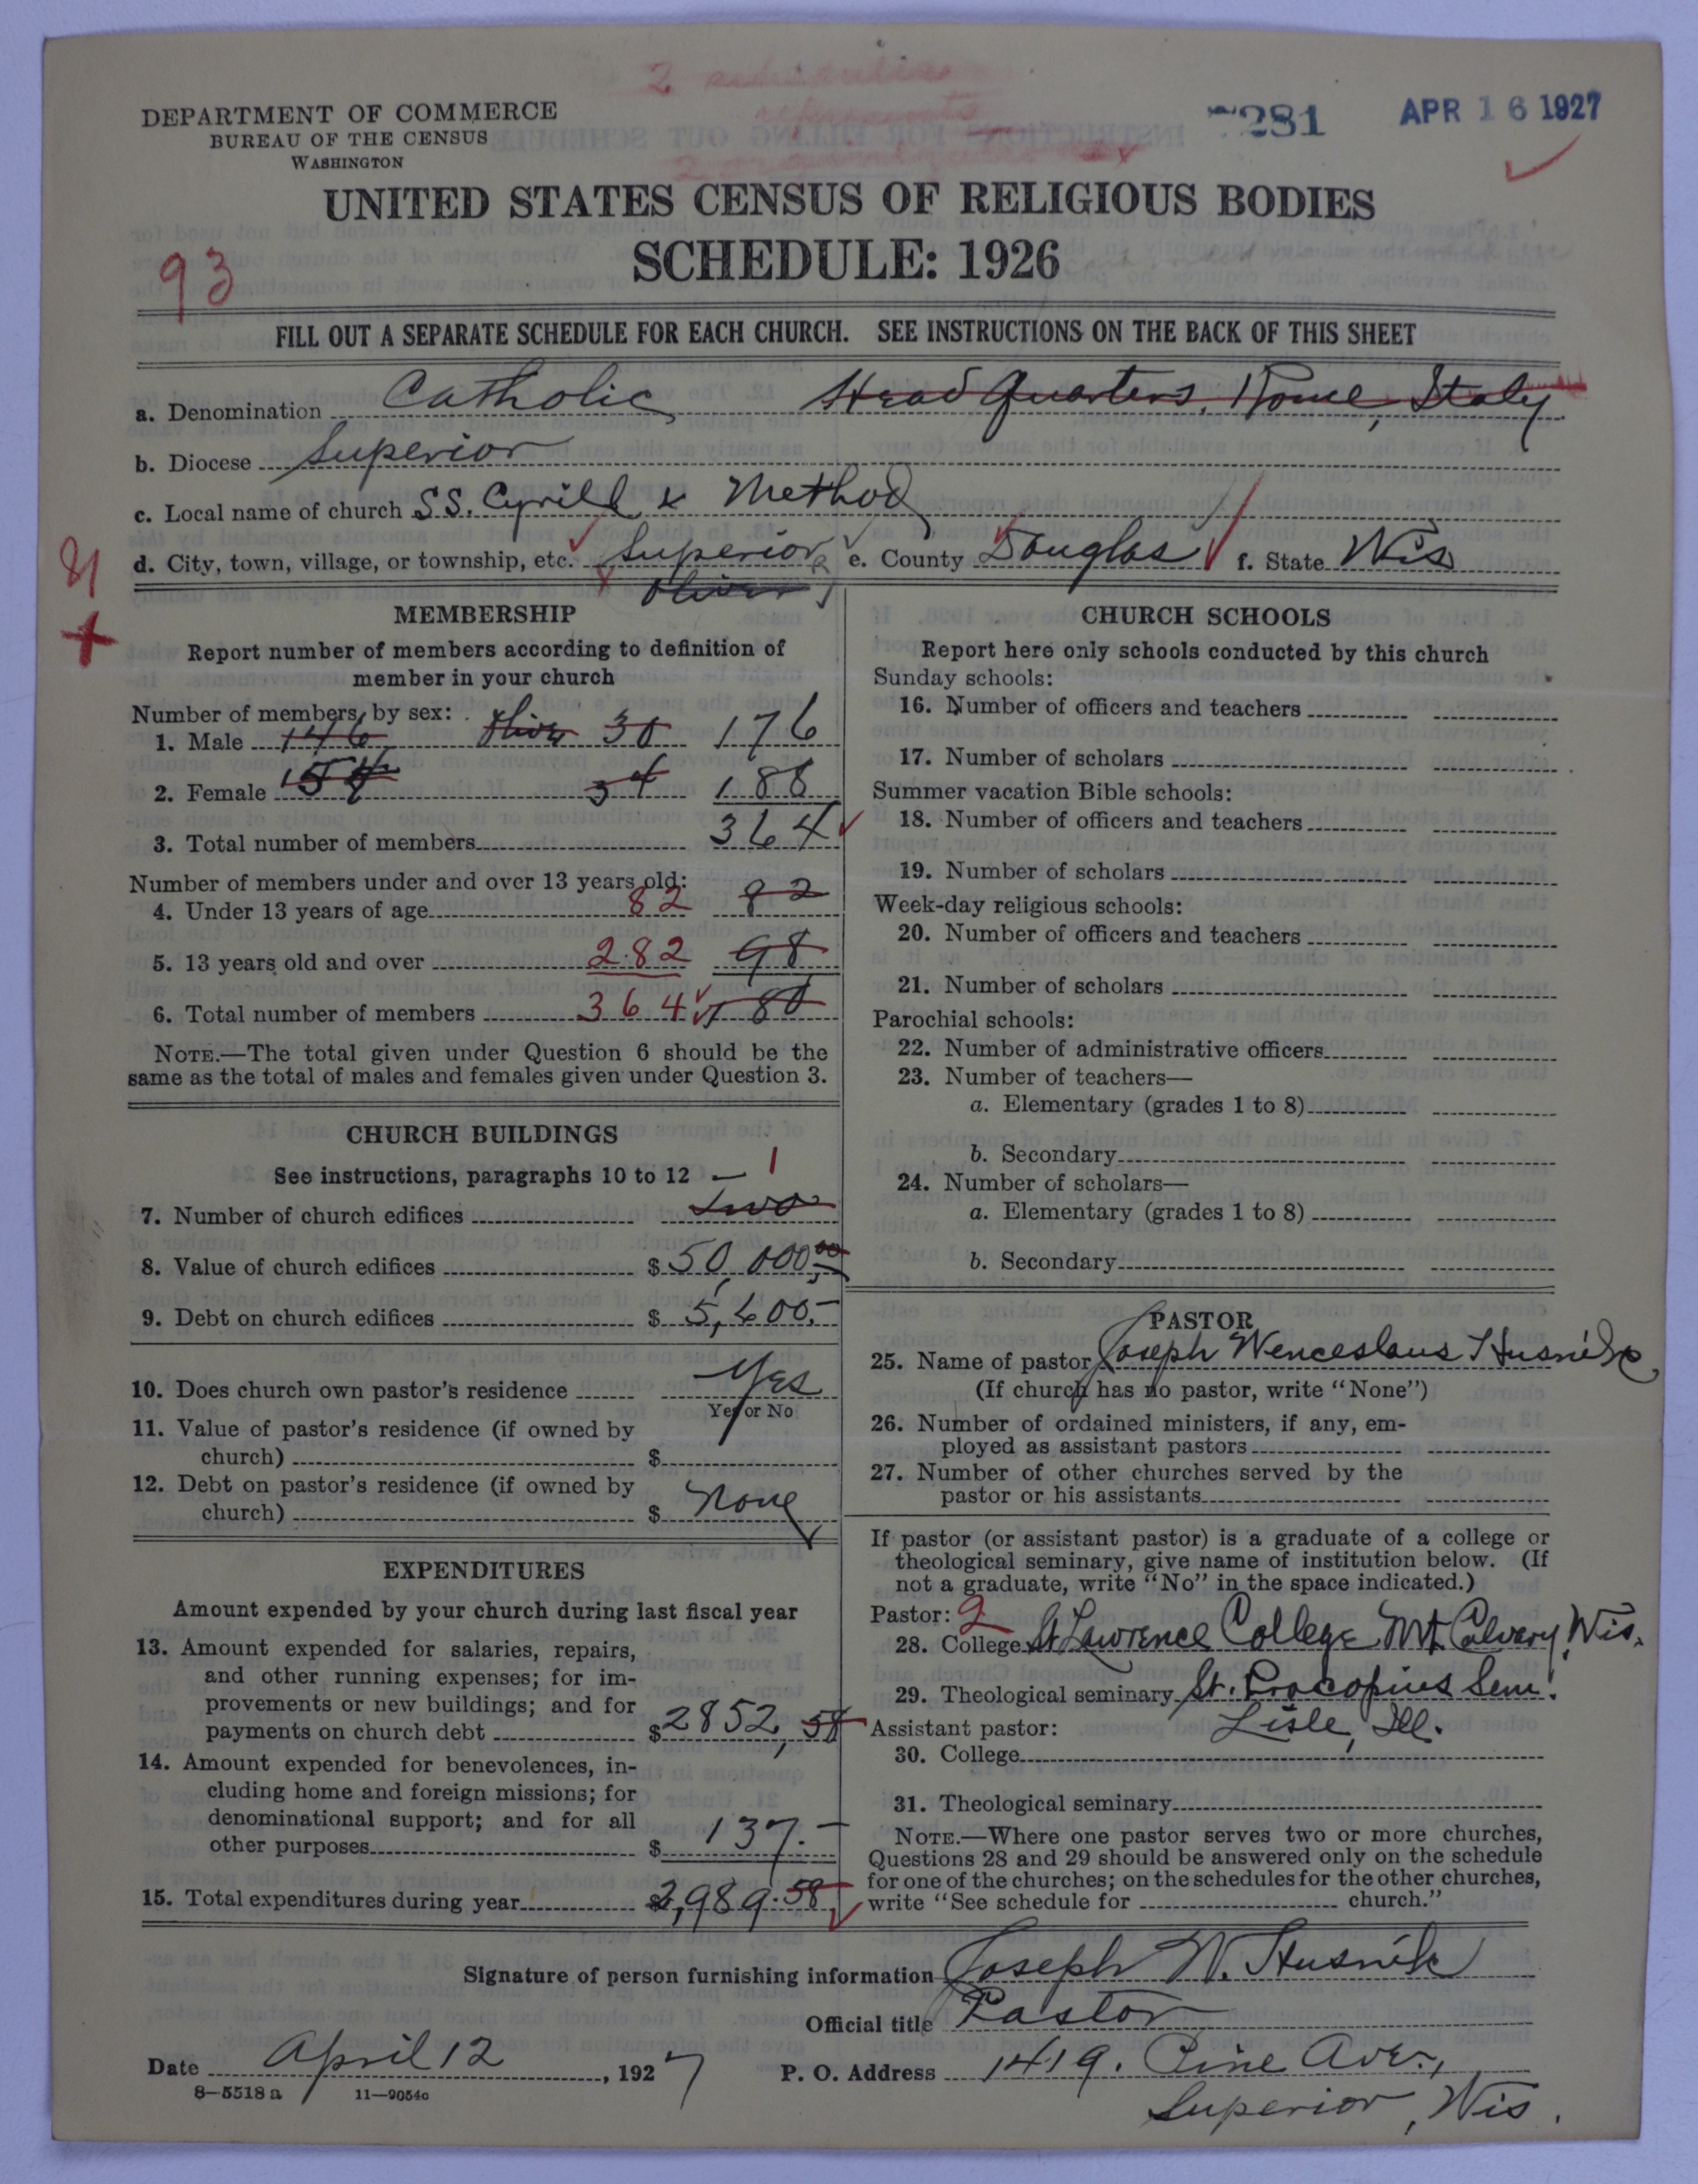 DEPARTMENT OF COMMERCE
BUREAU OF THE CENSUS
WASHINGTON
281 APR 16 1927
UNITED STATES CENSUS OF RELIGIOUS BODIES
SCHEDULE: 1926
93
FILL OUT A SEPARATE SCHEDULE FOR EACH CHURCH. SEE INSTRUCTIONS ON THE BACK OF THIS SHEET
a. Denomination Catholic Head Quarters, Rome, Italy
b. Diocese Superior
c. Local name of church SS. Cyrill & Method
d. City, town, village, or township, etc. Superior e. County Douglas f. State Wis
Oliver
MEMBERSHIP
Report number of members according to definition of
member in your church
Number of members, by sex:
1. Male 146 Oliver 30 176
2. Female 154 34 188
3. Total number of members 364
Number of members under and over 13 years old:
4. Under 13 years of age 82 82
5. 13 years old and over 282 98
6. Total number of members 364 180
NOTE.—The total given under Question 6 should be the
same as the total of males and females given under Question 3.
CHURCH BUILDINGS
See instructions, paragraphs 10 to 12 — 1
7. Number of church edifices two
8. Value of church edifices $50,000.00
9. Debt on church edifices $5,600.-
10. Does church own pastor's residence Yes
Yes or No
11. Value of pastor's residence (if owned by
church) $
12. Debt on pastor's residence (if owned by
church) $ None
EXPENDITURES
Amount expended by your church during last fiscal year
13. Amount expended for salaries, repairs,
and other running expenses; for im-
provements or new buildings; and for
payments on church debt $2852,58
14. Amount expended for benevolences, in-
cluding home and foreign missions; for
denominational support; and for all
other purposes $137.-
15. Total expenditures during year $2,989.58
CHURCH SCHOOLS
Report here only schools conducted by this church
Sunday schools:
16. Number of officers and teachers
17. Number of scholars
Summer vacation Bible schools:
18. Number of officers and teachers
19. Number of scholars
Week-day religious schools:
20. Number of officers and teachers
21. Number of scholars
Parochial schools:
22. Number of administrative officers
23. Number of teachers—
a. Elementary (grades 1 to 8)
b. Secondary
24. Number of scholars—
a. Elementary (grades 1 to 8)
b. Secondary
PASTOR
25. Name of pastor Joseph Wenceslaus Husnik
(If church has no pastor, write "None")
26. Number of ordained ministers, if any, em-
ployed as assistant pastors
27. Number of other churches served by the
pastor or his assistants
If pastor (or assistant pastor) is a graduate of a college or
theological seminary, give name of institution below. (If
not a graduate, write "No" in the space indicated.)
Pastor: 2
28. College St Lawrence College Mt. Calvary, Wis.
29. Theological seminary St. Procopius Sem.
Lisle, Ill.
Assistant pastor:
30. College
31. Theological seminary
NOTE.—Where one pastor serves two or more churches,
Questions 28 and 29 should be answered only on the schedule
for one of the churches; on the schedules for the other churches,
write "See schedule for church."
Signature of person furnishing information Joseph W. Husnik
Official title Pastor
Date April 12, 1927 P. O. Address 1419. Pine Ave.,
Superior, Wis.
8—5518 a 11—9054c